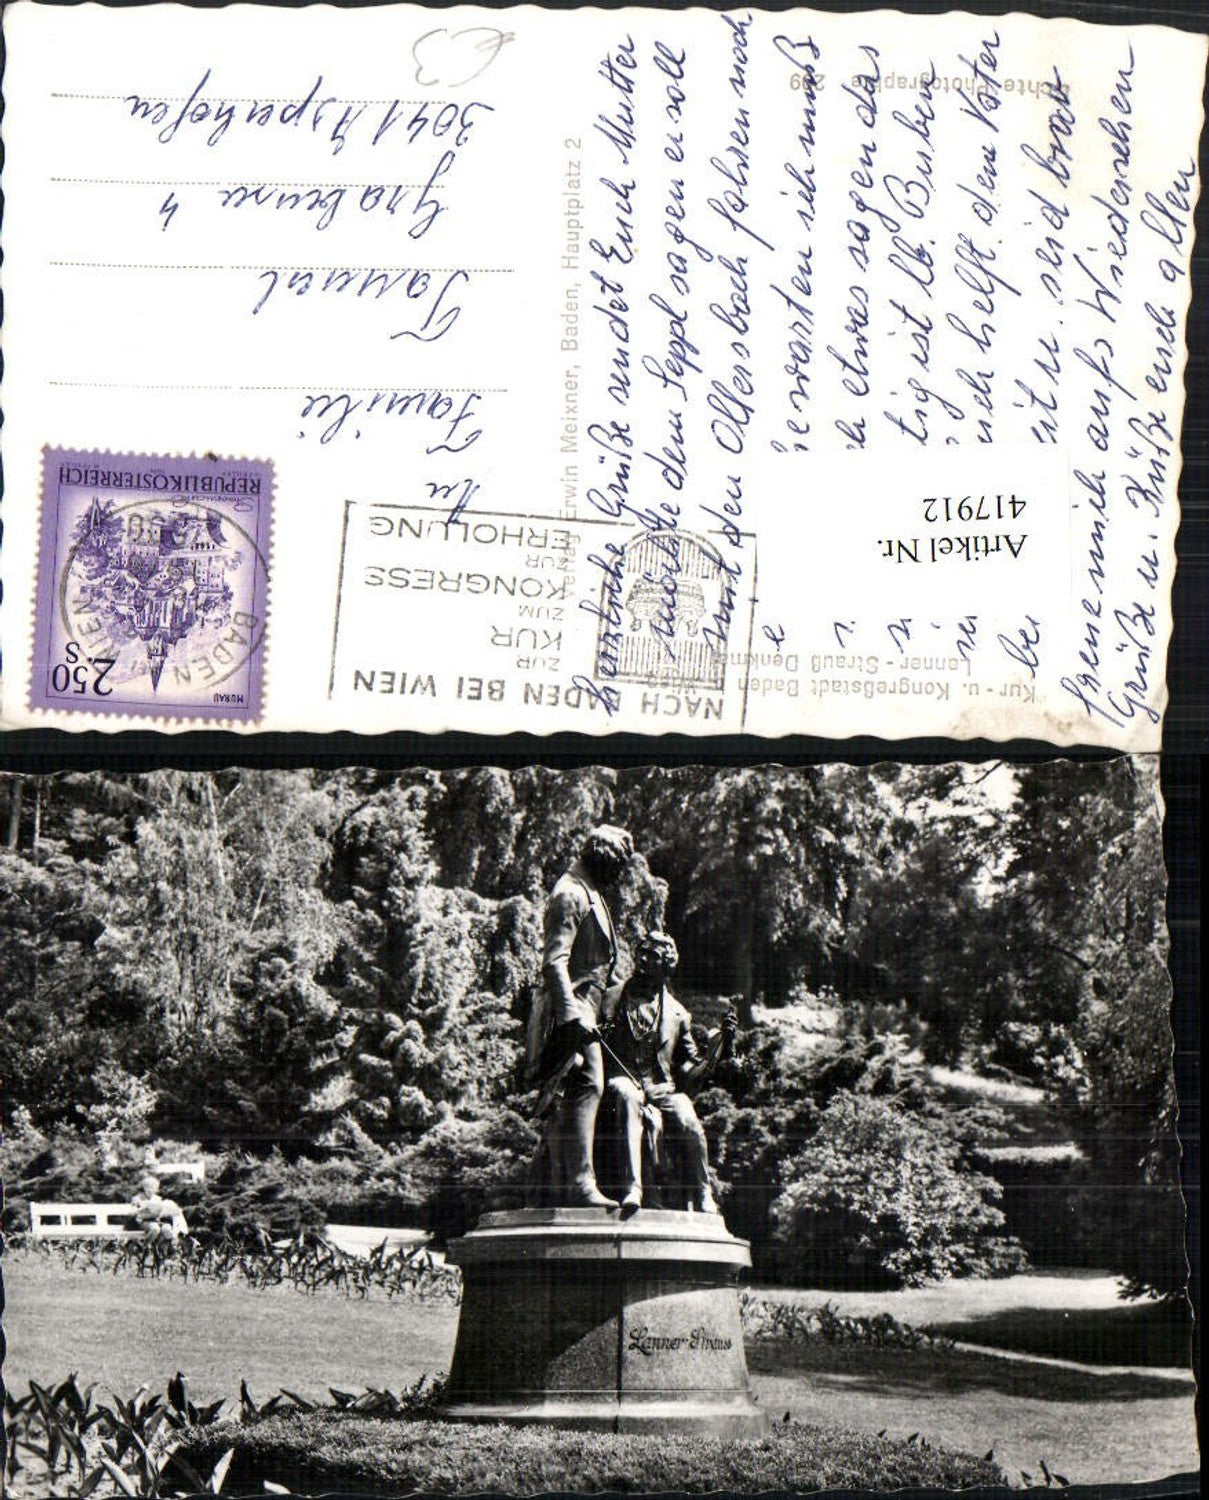 Kur- u. Kongreßstadt Baden b. Wien
Lanner - Strauß Denkmal
Echte Photographie 299
Verlag Erwin Meixner, Baden, Hauptplatz 2
NACH BADEN BEI WIEN
ZUR
KUR
ZUM
KONGRESS
ZUR
ERHOLUNG
BADEN BEI WIEN
2500
MURAU
2.50 S
REPUBLIK ÖSTERREICH
Artikel Nr.
417912
€3
An
Familie
Grabensee 4
3041 Asperhofen
Herzliche Grüße sendet Euch Mutter
möchte dem Seppl sagen er soll
mit den Ollersbach fahren noch
warten ich muß
etwas sagen das
tig ist lb. Buben
helft dem Vater
seid brav
freue mich aufs Wiedersehen
Grüße u. Küße euch allen
Lanner-Strauss